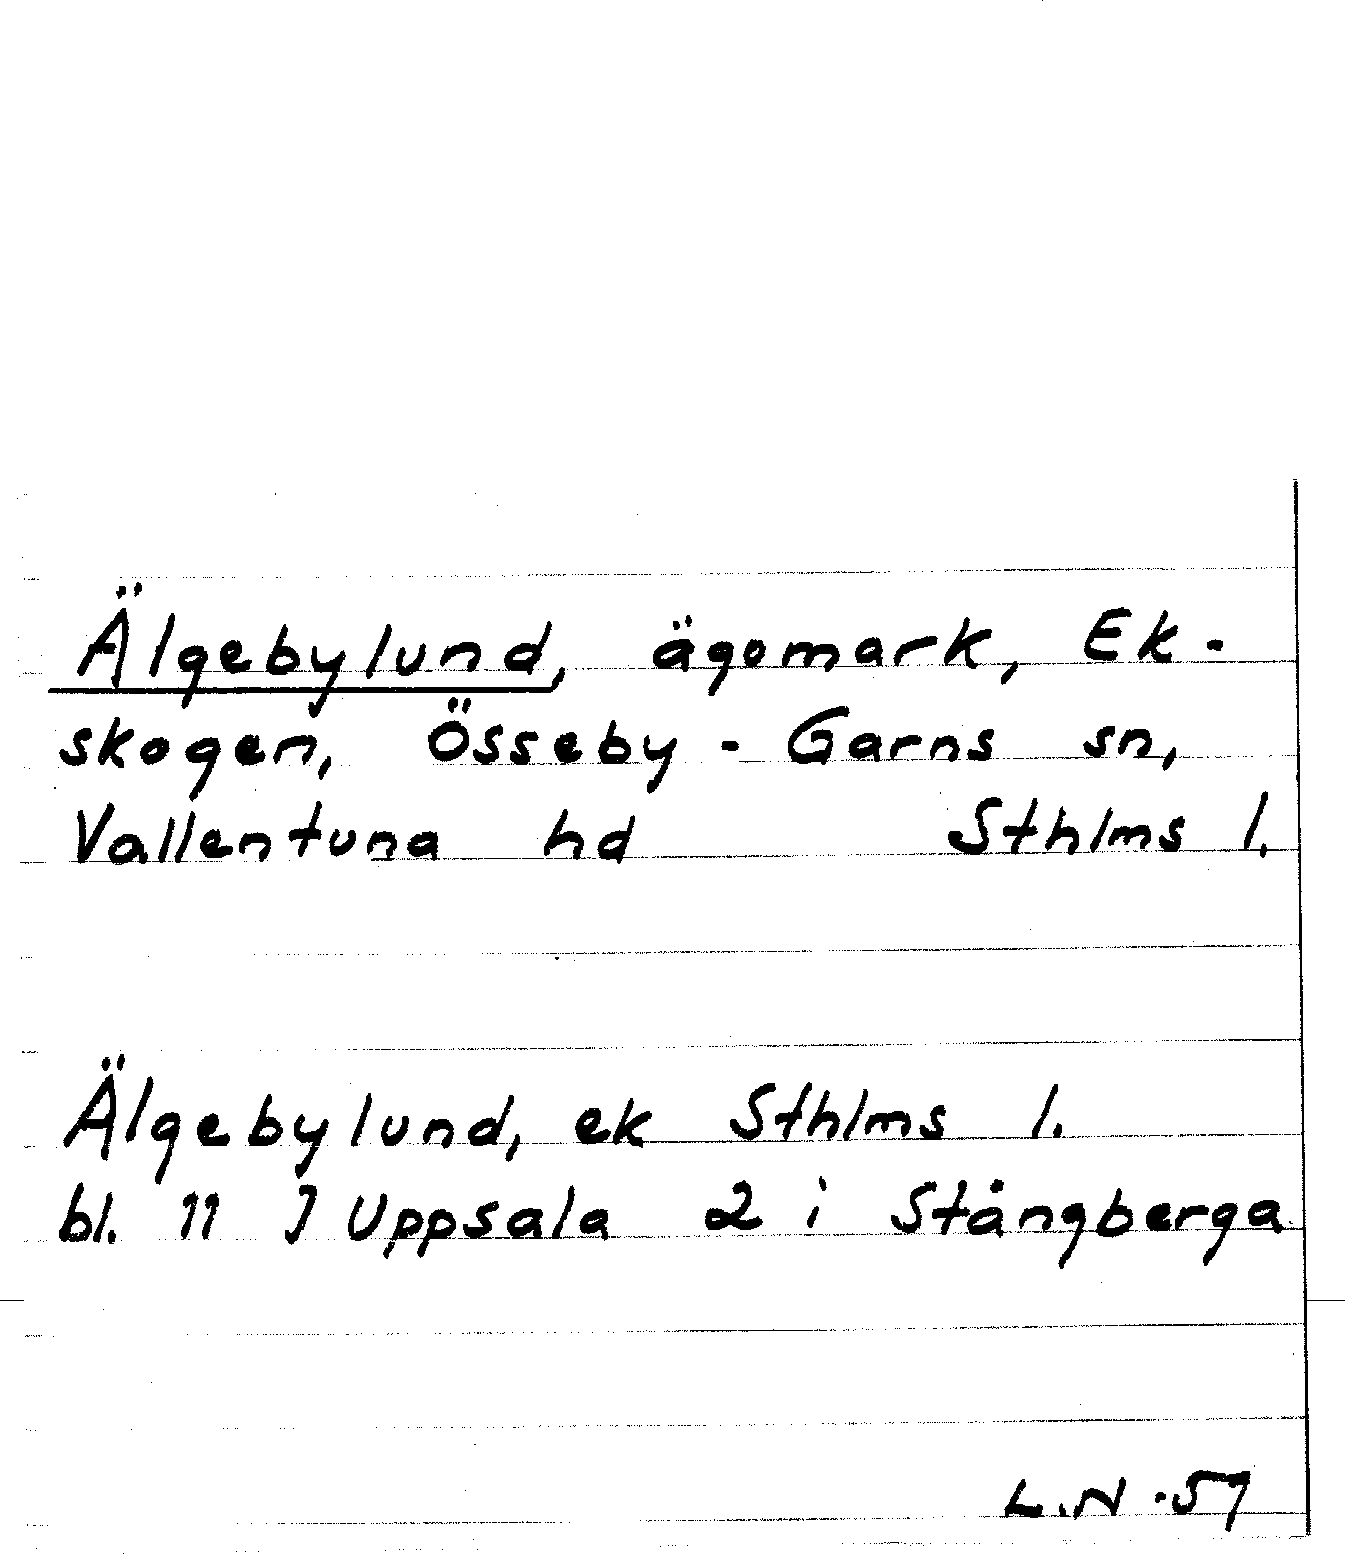 Älgebylund, ägomark, Ek-
skogen, Össeby - Garns sn,
Vallentuna hd Sthlms l.
Älgebylund, ek Sthlms l.
bl. 11 J Uppsala 2 i Stångberga
L.N -57